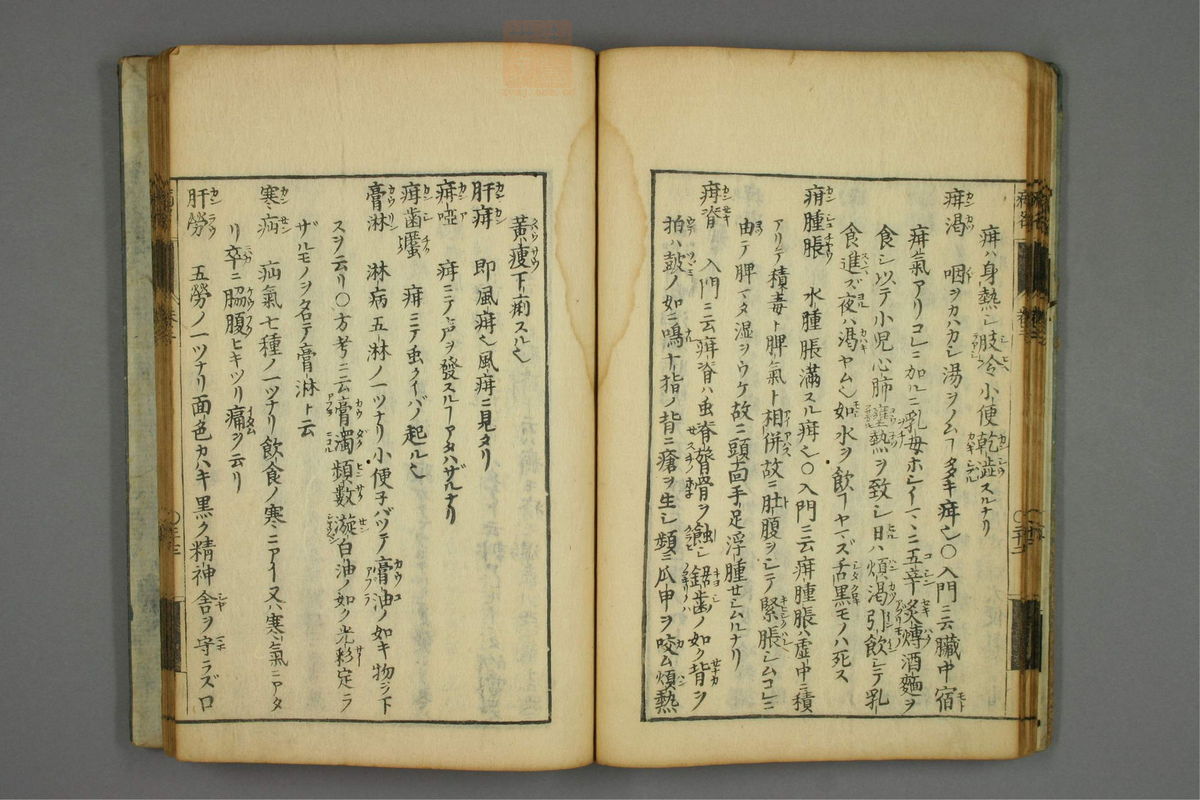 疳ハ身熱シ肢冷小便乾澁スルナリ
疳渇 咽ヲカハカシ湯ヲノムヿ多キ疳也〇入門ニ云臟中宿
疳氣アリコレニ加ルニ乳母ホシイマヽニ五辛炙煿酒麵ヲ
食シ以テ小児心肺壅熱ヲ致シ日ハ煩渇引飲シテ乳
食進ズ夜ハ渇ヤム也如水ヲ飲ヿヤマズ舌黒モノハ死ス
疳腫脹 水腫脹滿スル疳也〇入門ニ云疳腫脹ハ虚中ニ積
アリテ積毒ト脾氣ト相併故ニ肚腹ヲシテ緊脹シムコレニ
由テ脾マタ湿ヲウケ故ニ頭面手足浮腫セシムルナリ
疳脊 入門ニ云疳脊ハ虫脊膂骨ヲ蝕シ鋸歯ノ如ク背ヲ
拍ハ皷ノ如ニ鳴十指ノ背ニ瘡ヲ生シ頻ニ爪甲ヲ咬ム煩熱
黄痩下痢スル也
肝疳 即風疳也風疳ニ見タリ
疳啞 疳ニテ声ヲ發スルヿアタハザルナリ
疳歯䘌 疳ニテ虫クイバノ起ル也
膏淋 淋病五淋ノ一ツナリ小便子バツテ膏油ノ如キ物ヲ下
スヲ云リ〇方考ニ云膏濁頻數漩白油ノ如ク光彩定ラ
ザルモノヲ名テ膏淋ト云
寒疝 疝氣七種ノ一ツナリ飲食ノ寒ニアイ又ハ寒氣ニアタ
リ卒ニ脇腹ヒキツリ痛ヲ云リ
肝勞 五勞ノ一ツナリ面色カハキ黒ク精神舎ヲ守ラズロ